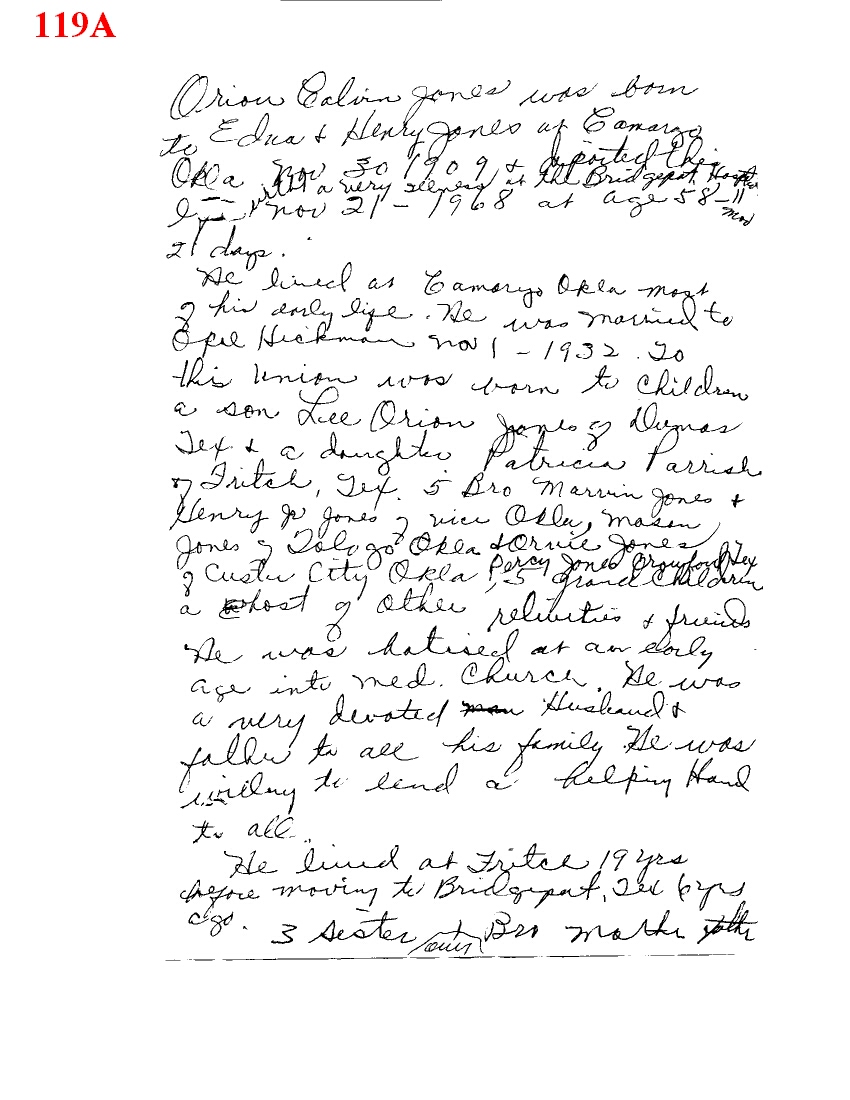 119A
Orion Calvin Jones was born
to Edna & Henry Jones at Camargo
Okla Nov 30 1909 & departed this
with a very at the Bridgeport
Nov 21 - 1968 at age 58 - 11
mos
21 days.
He lived at Camargo Okla most
of his early life. He was married to
Opal Hickman Nov 1 - 1932. To
this Union was born to children
a son Lee Orion Jones of Dumas
Tex & a daughter Patricia Parrish
of Fritch, Tex. 5 Bro Marvin Jones &
Henry Jr Jones of vici Okla, Mason
Jones of Okla & Orvie Jones
Percy Jones Tex
of Custer City Okla, 5 grand Children
a host of other & friends
He was at an early
age into med. Church. He was
a very devoted man Husband &
father to all his family He was
willing to lend a helping Hand
to all.
He lived at Fritch 19 yrs
before moving to Bridgeport, Tex 6 yrs
ago. 3 Sister Bro